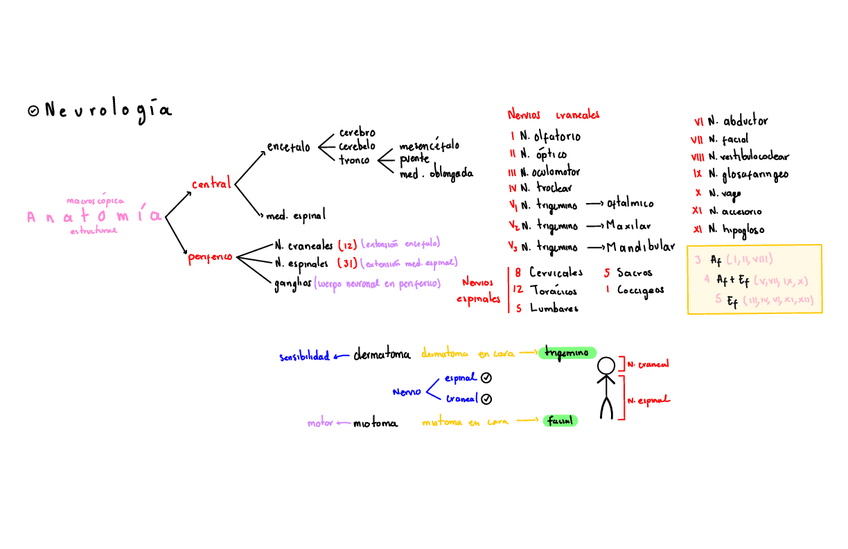 Neurología
macroscópica
Anatomía
estructural
central
encéfalo
cerebro
cerebelo
tronco
mesencéfalo
puente
med. oblongada
med. espinal
periferico
N. craneales (12) (extensión encefalo)
N. espinales (31) (extensión med. espinal)
ganglios (cuerpo neuronal en periferico)
Nervios craneales
I N. olfatorio
II N. óptico
III N. oculomotor
IV N. troclear
V1 N. trigemino → oftalmico
V2 N. trigemino → Maxilar
V3 N. trigemino → Mandibular
VI N. abductor
VII N. facial
VIII N. vestibulococlear
IX N. glosofaringeo
X N. vago
XI N. accesorio
XI N. hipogloso
3 Af (I, II, VIII)
4 Af + Ef (V, VII, IX, X)
5 Ef (III, IV, VI, XI, XII)
Nervios espinales
8 Cervicales 5 Sacros
12 Torácicos 1 Coccigeos
5 Lumbares
sensibilidad ← dermatoma dermatoma en cara → trigemino
Nervio
espinal
craneal
motor ← miotoma miotoma en cara → facial
N. craneal
N. espinal